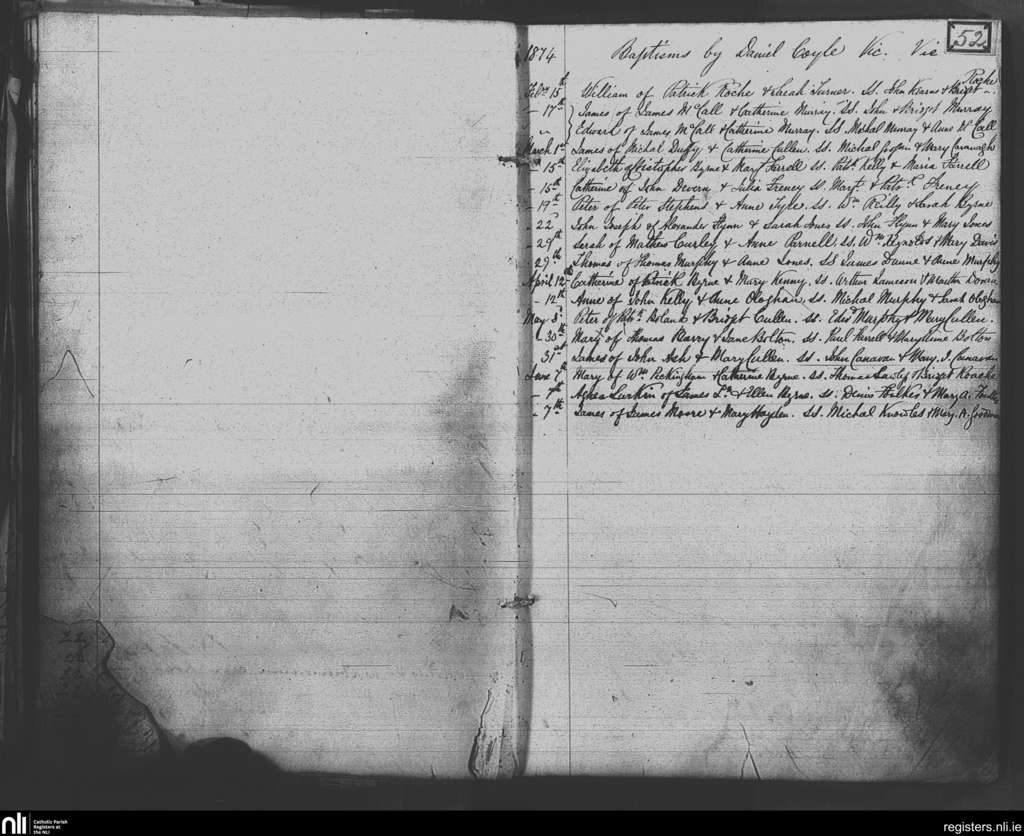 52
1874 Baptisms by Daniel Coyle Vic. Vic
Roche
Feby 15th William of Patrick Roche & Sarah Turner. Ss. John Kearns & Bridgt "
- 17th James of James McCall & Catherine Murray. Ss. John & Bridget Murray
" Edward of James McCall & Catherine Murray. Ss Michal Murray & Anne McCall
March 1st James of Michal Duffy & Catherine Cullen. Ss. Michal & Mary Cavanagh
- 15th Elizabeth of Christopher Byrne & Mary Farrell Ss. Patk Kelly & Maria Farrell
- 15th Catherine of John Devern & Julia Freney Ss. Margt & Patrk Freney
- 19th Peter of Peter Stephens & Anne Tyre. Ss. Wm Reilly & Sarah Byrne
- 22d John Joseph of Alexander Flynn & Sarah Jones Ss. John Flynn & Mary Jones
- 29th Sarah of Mathew Curley & Anne Parnell. Ss. Wm Reynolds & Mary Davis
29th Thomas of Thomas Murphy & Anne Jones. Ss James Dunne & Anne Murphy
April 12th Catherine of Patrick Byrne & Mary Kenny. Ss. Arthur Jameson & Martha
- 12th Anne of John Kelly & Anne Ologhan. Ss. Michal Murphy & Sarah Ologhan
May 3d Peter of Robt Boland & Bridgt Cullen. Ss. Edwd Murphy & Mary Cullen.
- 30th Mary of Thomas Barry & Jane Bolton. Ss. Paul Farrell & Mary Anne Bolton
31st James of John Ash & Mary Cullen. Ss. John Canavan & Mary J. Canavan
June 7th Mary of Wm Peckingham & Catherine Byrne. Ss. Thomas Lawly & Bridget Roache
- 7th Agnes Lurkin of James L. & Ellen Byrne. Ss. Denis Foulkes & Mary A.
- 7th James of James Moore & Mary Hayden. Ss. Michal Knowles & Mary A. Goodwin
nli Catholic Parish
Registers at
the NLI
registers.nli.ie